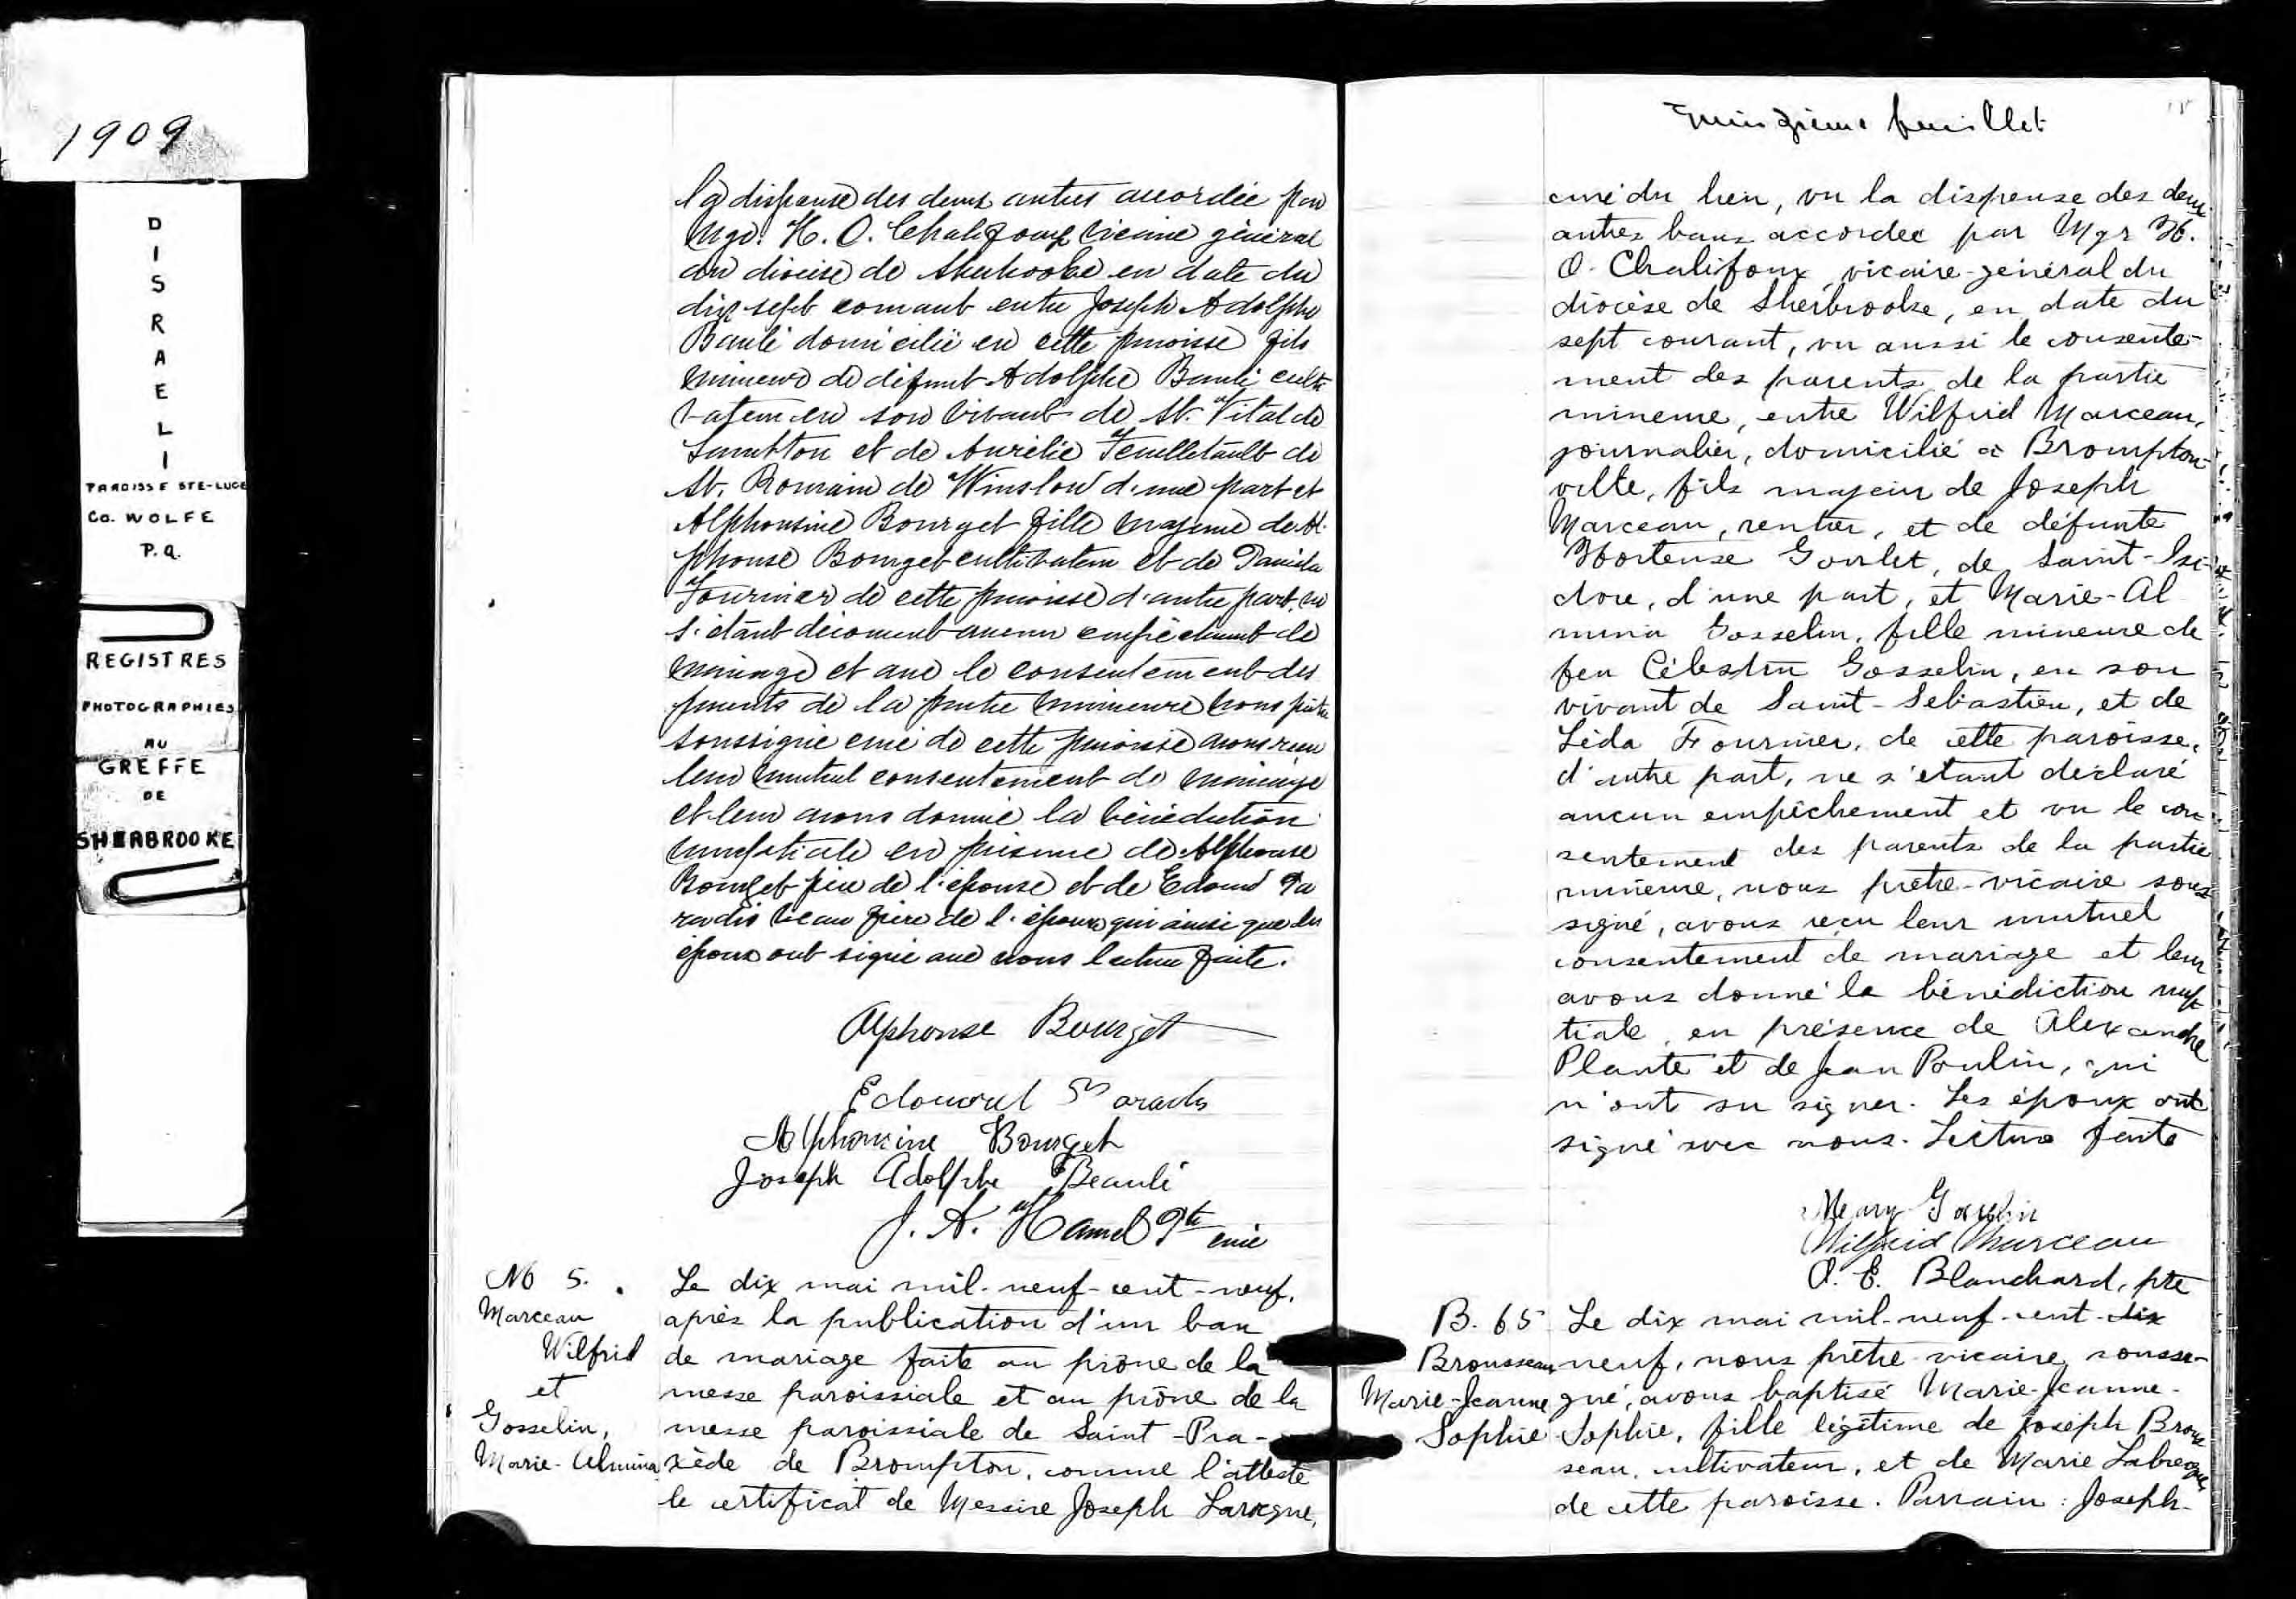 1909
DISRAELI
PAROISSE STE-LUCE
CO. WOLFE
P.Q.
REGISTRES
PHOTOGRAPHIES
AU
GREFFE
DE
SHERBROOKE
la dispense des deux autres accordée par
Mgr. H. O. Chalifoux vicaire général
du diocèse de Sherbrooke en date du
dix sept courant entre Joseph Adolphe
Baulé domicilié en cette paroisse fils
mineur de défunt Adolphe Baulé culti
vateur en son vivant de St. Vital de
Lambton et de Aurélie Feuilletault de
St. Romain de Winslow d'une part et
Alphonsine Bourget fille majeure de Al
phonse Bourget cultivateur et de
Fournier de cette paroisse d'autre part, ne
s'étant découvert aucun empêchement de
mariage et avec le consentement des
parents de la partie mineure nous prêtre
soussigné curé de cette paroisse avons reçu
leur mutuel consentement de mariage
et leur avons donné la bénédiction
nuptiale en présence de Alphonse
Bourget père de l'épouse et de Edouard Pa
radis beau frère de l'époux qui ainsi que les
époux ont signé avec nous lecture faite.
Alphonse Bourget
Edouard Paradis
Alphonsine Bourget
Joseph Adolphe Beaulé
J. A. Hamel Ptre
curé
M 5.
Marceau
Wilfrid
et
Gosselin,
Marie-Almina
Le dix mai mil-neuf-cent-neuf,
après la publication d'un ban
de mariage faite au prône de la
messe paroissiale et au prône de la
messe paroissiale de Saint-Pra-
xède de Brompton, comme l'atteste
le certificat de Messire Joseph Laroque,
Quinzième feuillet
15
curé du lieu, vu la dispense des deux
autres bans accordée par Mgr H.
O. Chalifoux, vicaire-général du
diocèse de Sherbrooke, en date du
sept courant, vu aussi le consente-
ment des parents de la partie
mineure, entre Wilfrid Marceau,
journalier, domicilié à Brompton-
ville, fils majeur de Joseph
Marceau, rentier, et de défunte
Hortense Goulet, de Saint-Isi-
dore, d'une part, et Marie-Al
mina Gosselin, fille mineure de
feu Célestin Gosselin, en son
vivant de Saint-Sébastien, et de
Léda Fournier, de cette paroisse,
d'autre part, ne s'étant déclaré
aucun empêchement et vu le con
sentement des parents de la partie
mineure, nous prêtre-vicaire sous
signé, avons reçu leur mutuel
consentement de mariage et leur
avons donné la bénédiction nup
tiale, en présence de Alexandre
Plante et de Jean Poulin, qui
n'ont su signer. Les époux ont
signé avec nous. Lecture faite
Mary Gosselin
Wilfrid Marceau
O. E. Blanchard, ptre
B. 65
Brousseau
Marie-Jeanne
Sophie
Le dix mai mil-neuf-cent-dix
neuf, nous prêtre-vicaire soussi-
gné, avons baptisé Marie-Jeanne-
Sophie, fille légitime de Joseph Brous
seau, cultivateur, et de Marie Labrecque
de cette paroisse. Parrain: Joseph-